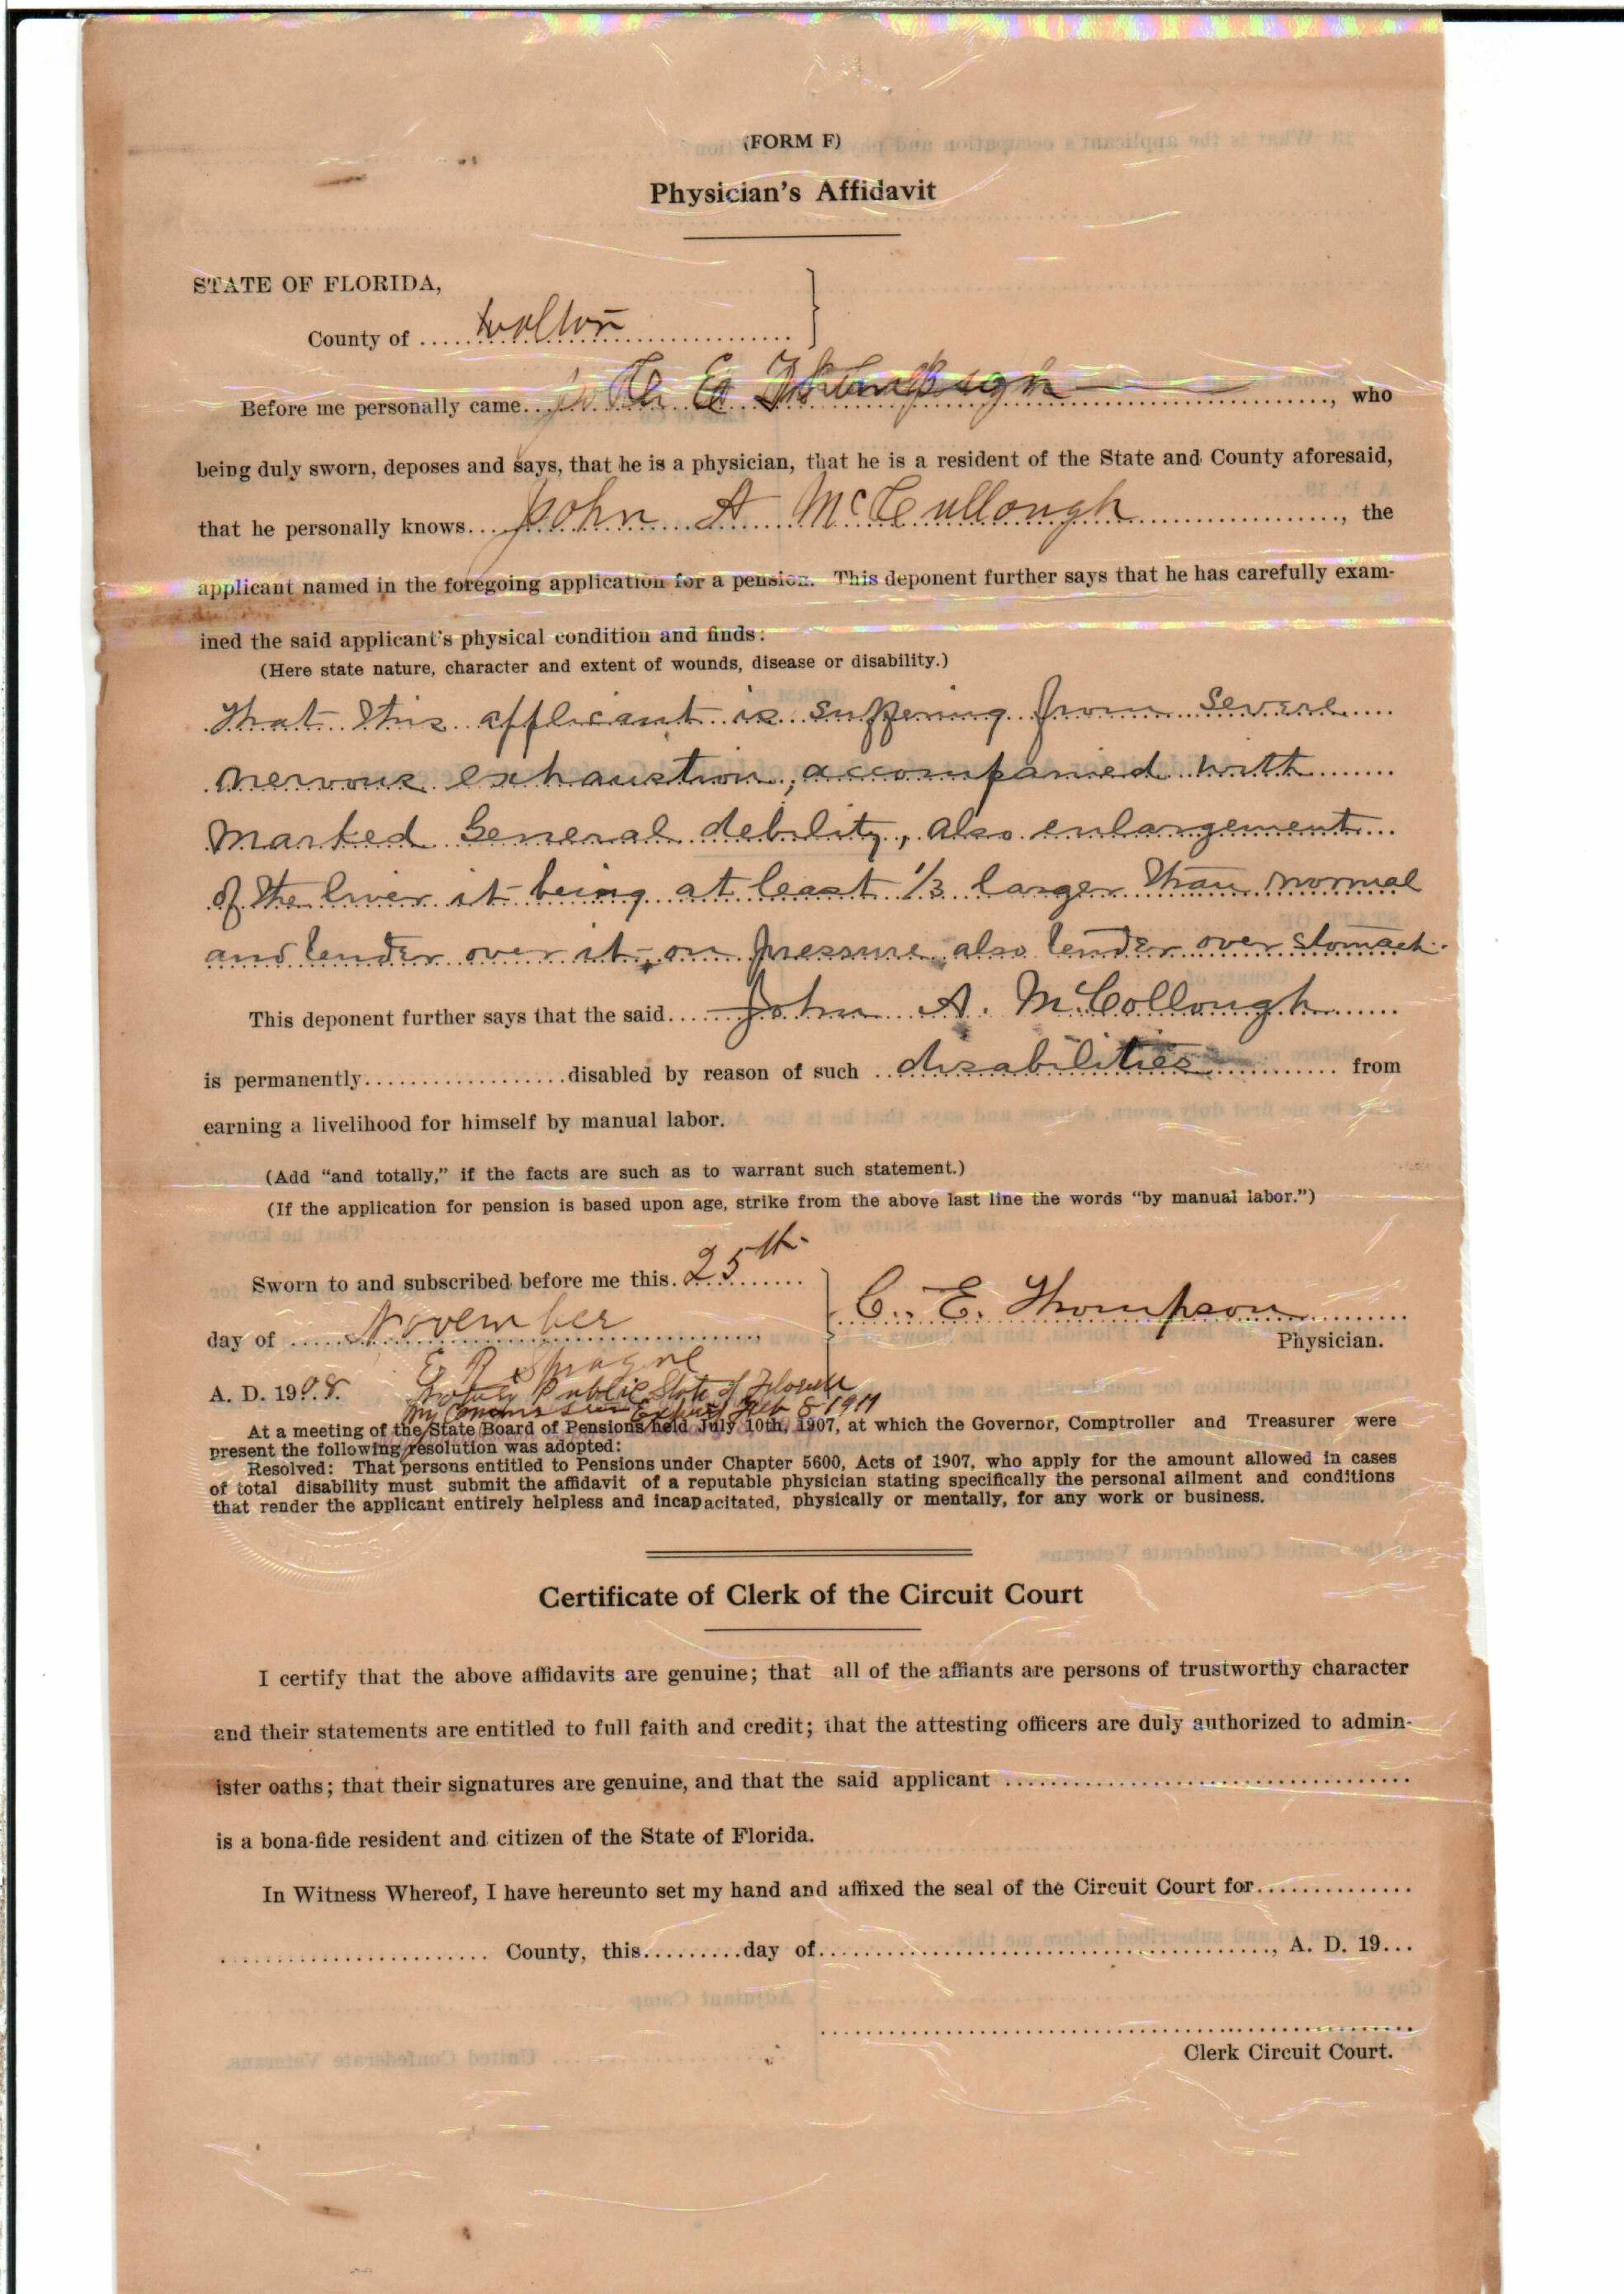 (FORM F)
Physician's Affidavit
STATE OF FLORIDA,
County of Walton
Before me personally came , who
being duly sworn, deposes and says, that he is a physician, that he is a resident of the State and County aforesaid,
that he personally knows John A McCullough , the
applicant named in the foregoing application for a pension. This deponent further says that he has carefully exam-
ined the said applicant's physical condition and finds:
(Here state nature, character and extent of wounds, disease or disability.)
That this applicant is suffering from severe
nervous exhaustion, accompanied with
marked General debility, also enlargement
of the liver it being at least 1/3 larger than normal
and tender over it on pressure also tender over stomach.
This deponent further says that the said John A. McCollough
is permanently disabled by reason of such disabilities from
earning a livelihood for himself by manual labor.
(Add "and totally," if the facts are such as to warrant such statement.)
(If the application for pension is based upon age, strike from the above last line the words "by manual labor.")
Sworn to and subscribed before me this 25th
C. E. Thompson
day of November
Physician.
E R Sprague
A. D. 1908. Notary Public State of Florida
My Commission Expires Feb 8 1911
At a meeting of the State Board of Pensions held July 10th, 1907, at which the Governor, Comptroller and Treasurer were
present the following resolution was adopted:
Resolved: That persons entitled to Pensions under Chapter 5600, Acts of 1907, who apply for the amount allowed in cases
of total disability must submit the affidavit of a reputable physician stating specifically the personal ailment and conditions
that render the applicant entirely helpless and incapacitated, physically or mentally, for any work or business.
Certificate of Clerk of the Circuit Court
I certify that the above affidavits are genuine; that all of the affiants are persons of trustworthy character
and their statements are entitled to full faith and credit; that the attesting officers are duly authorized to admin-
ister oaths; that their signatures are genuine, and that the said applicant
is a bona-fide resident and citizen of the State of Florida.
In Witness Whereof, I have hereunto set my hand and affixed the seal of the Circuit Court for
County, this day of , A. D. 19
Clerk Circuit Court.